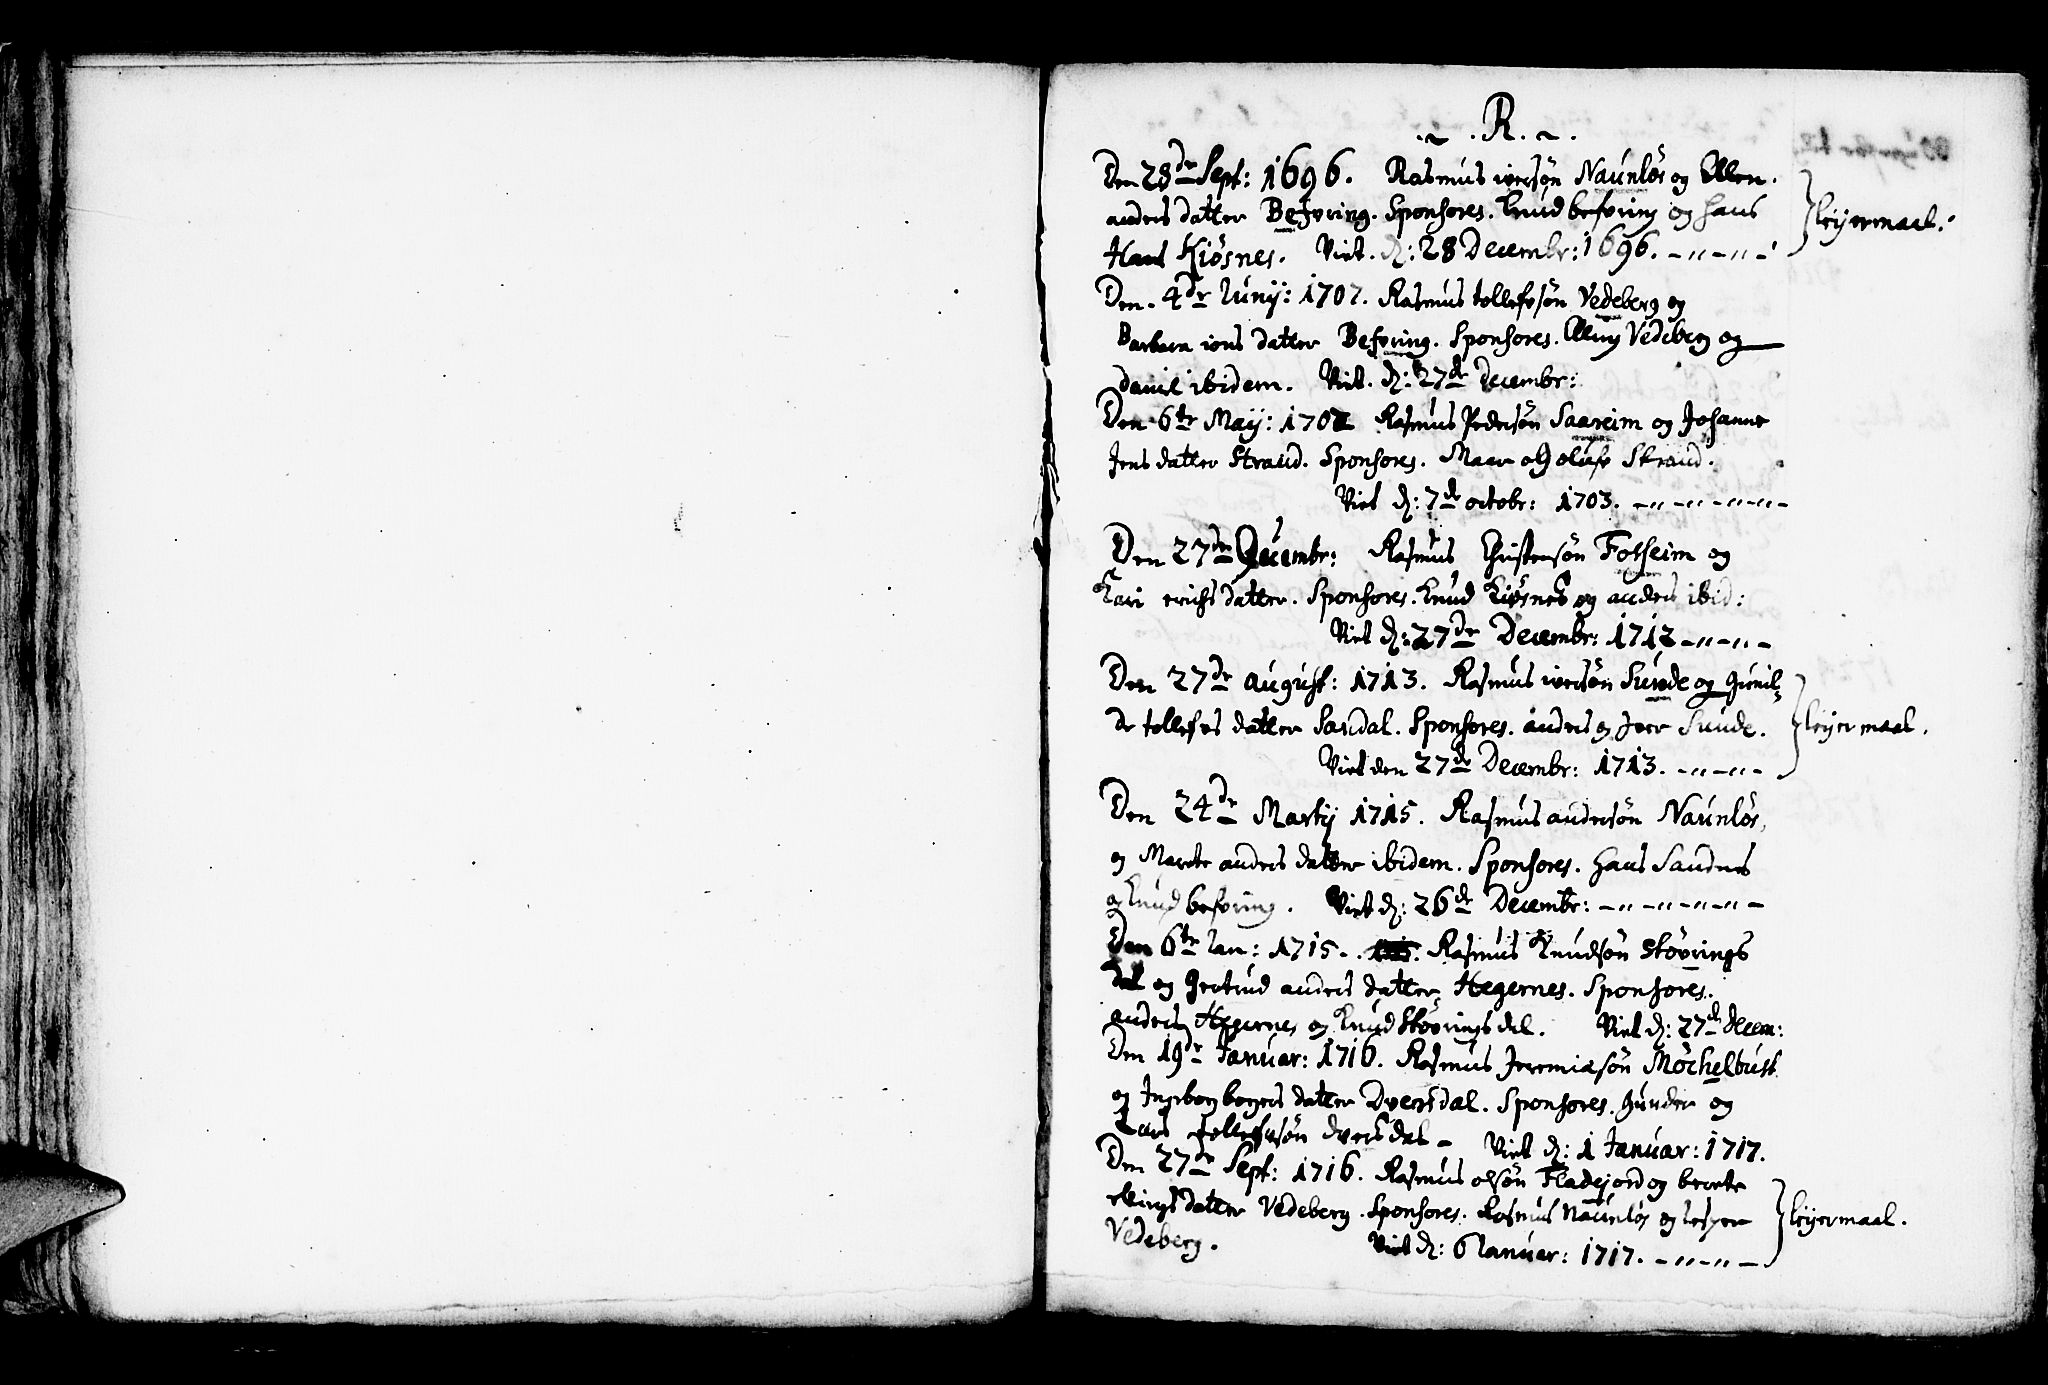 .~ . R . ~ .
Den 28de Sept: 1696. Rasmus iversøn Naunløs og Ellen.
anders datter Befring. Sponsores. Knud befring og hans
Hans Kiøsnes. Viet. d: 28 Decembr: 1696. -"-"-
leyermaal.
Den. 4de Iunij: 1707. Rasmus tollefsøn Vedeberg og
Barbara ions datter Befring. Sponsores. Elling Vedeberg og
daniel ibidem. Viet. d: 27de Decembr:
Den 6te Maij: 1702 Rasmus Pedersøn Saareim og Johanne
Jens datter Strand. Sponsores. og oluf Strand.
Viet d: 7de octobr: 1703. -"-"-"-"-
Den 27de Decembr: Rasmus Christensøn Folheim og
Kari erichs datter. Sponsores. Knud Kiøsnes og anders ibid:
Viet d: 27de Decembr: 1712 -"-"-
Den 27de august: 1713. Rasmus iversøn Sunde og Gunil-
de tollefs datter Sardal. Sponsores. anders og Iver Sunde.
Viet den 27de Decembr: 1713. -"-"-
leyermaal.
Den 24de Martij 1715. Rasmus andersøn Naunløs,
og Marete anders datter ibidem. Sponsores. hans Sandnes
og Knud befring. Viet d: 26de Decembr: -"-"-"-"-
Den 6te Ian: 1715. Rasmus Knudsøn Støvrings
dal og Gertrud anders datter Hegernes. Sponsores.
anders Hegernes og Knud Støvringsdal. Viet d: 27de Decem:
Den 19de Januar: 1716. Rasmus Jeremiasøn Møchelbust
og Ingeborg børges datter Dversdal. Sponsores. Gunder og
Lars tollefsøn dversdal - Viet d: 1 Januar: 1717.
Den 27de Sept: 1716. Rasmus olsøn Fladejord og berete
ellings datter Vedeberg. Sponsores. Rasmus Naunløs og Iesper
Vedeberg. Viet d: 6 Ianuar: 1717. -"-"-
leyermaal.